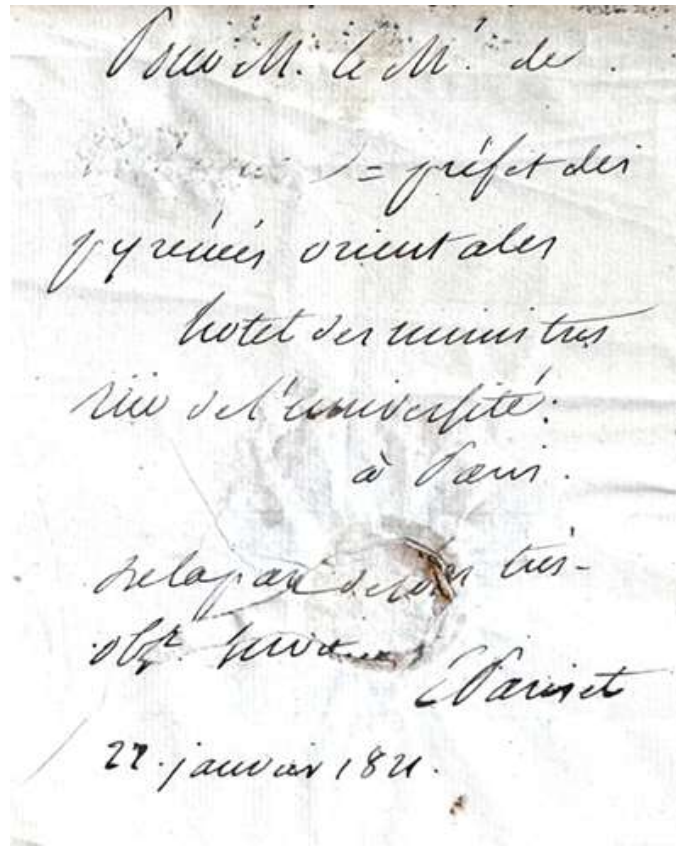 Pour M. le Mis. de
= préfet des
pyrénées orientales
hotel des ministres
rue de l'université.
à Paris.
de la part de son très-
obt. servit.
E Pariset
22. janvier 1821.